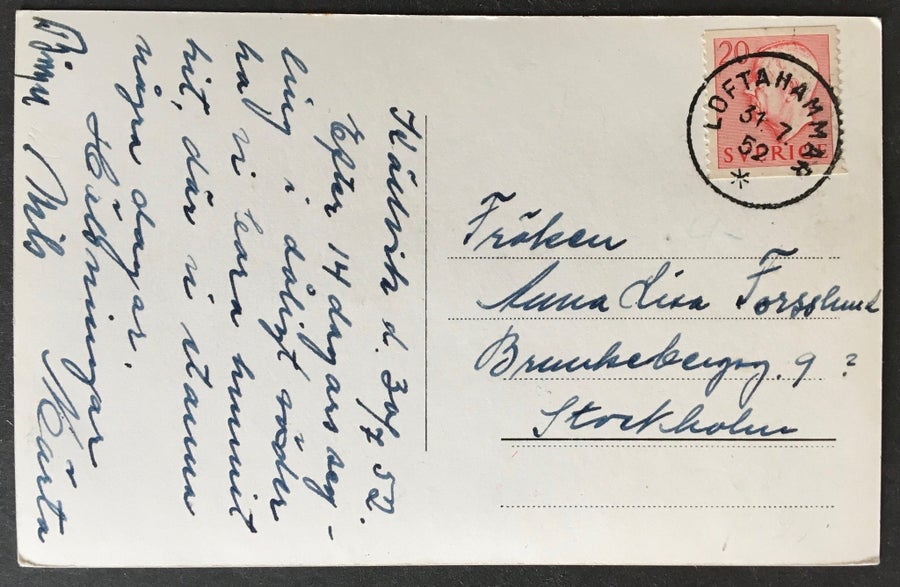 Källvik d. 30/7 52.
Efter 14 dagars seg-
ling i dåligt väder
ha vi bara hunnit
hit, där vi stanna
några dagar.
Hälsningar
Nils Märta
20
SVERIGE
LOFTAHAMMAR
31.7.
52
*
Fröken
Anna Lisa Forsslund
Brunkebergsg. 9 ?
Stockholm